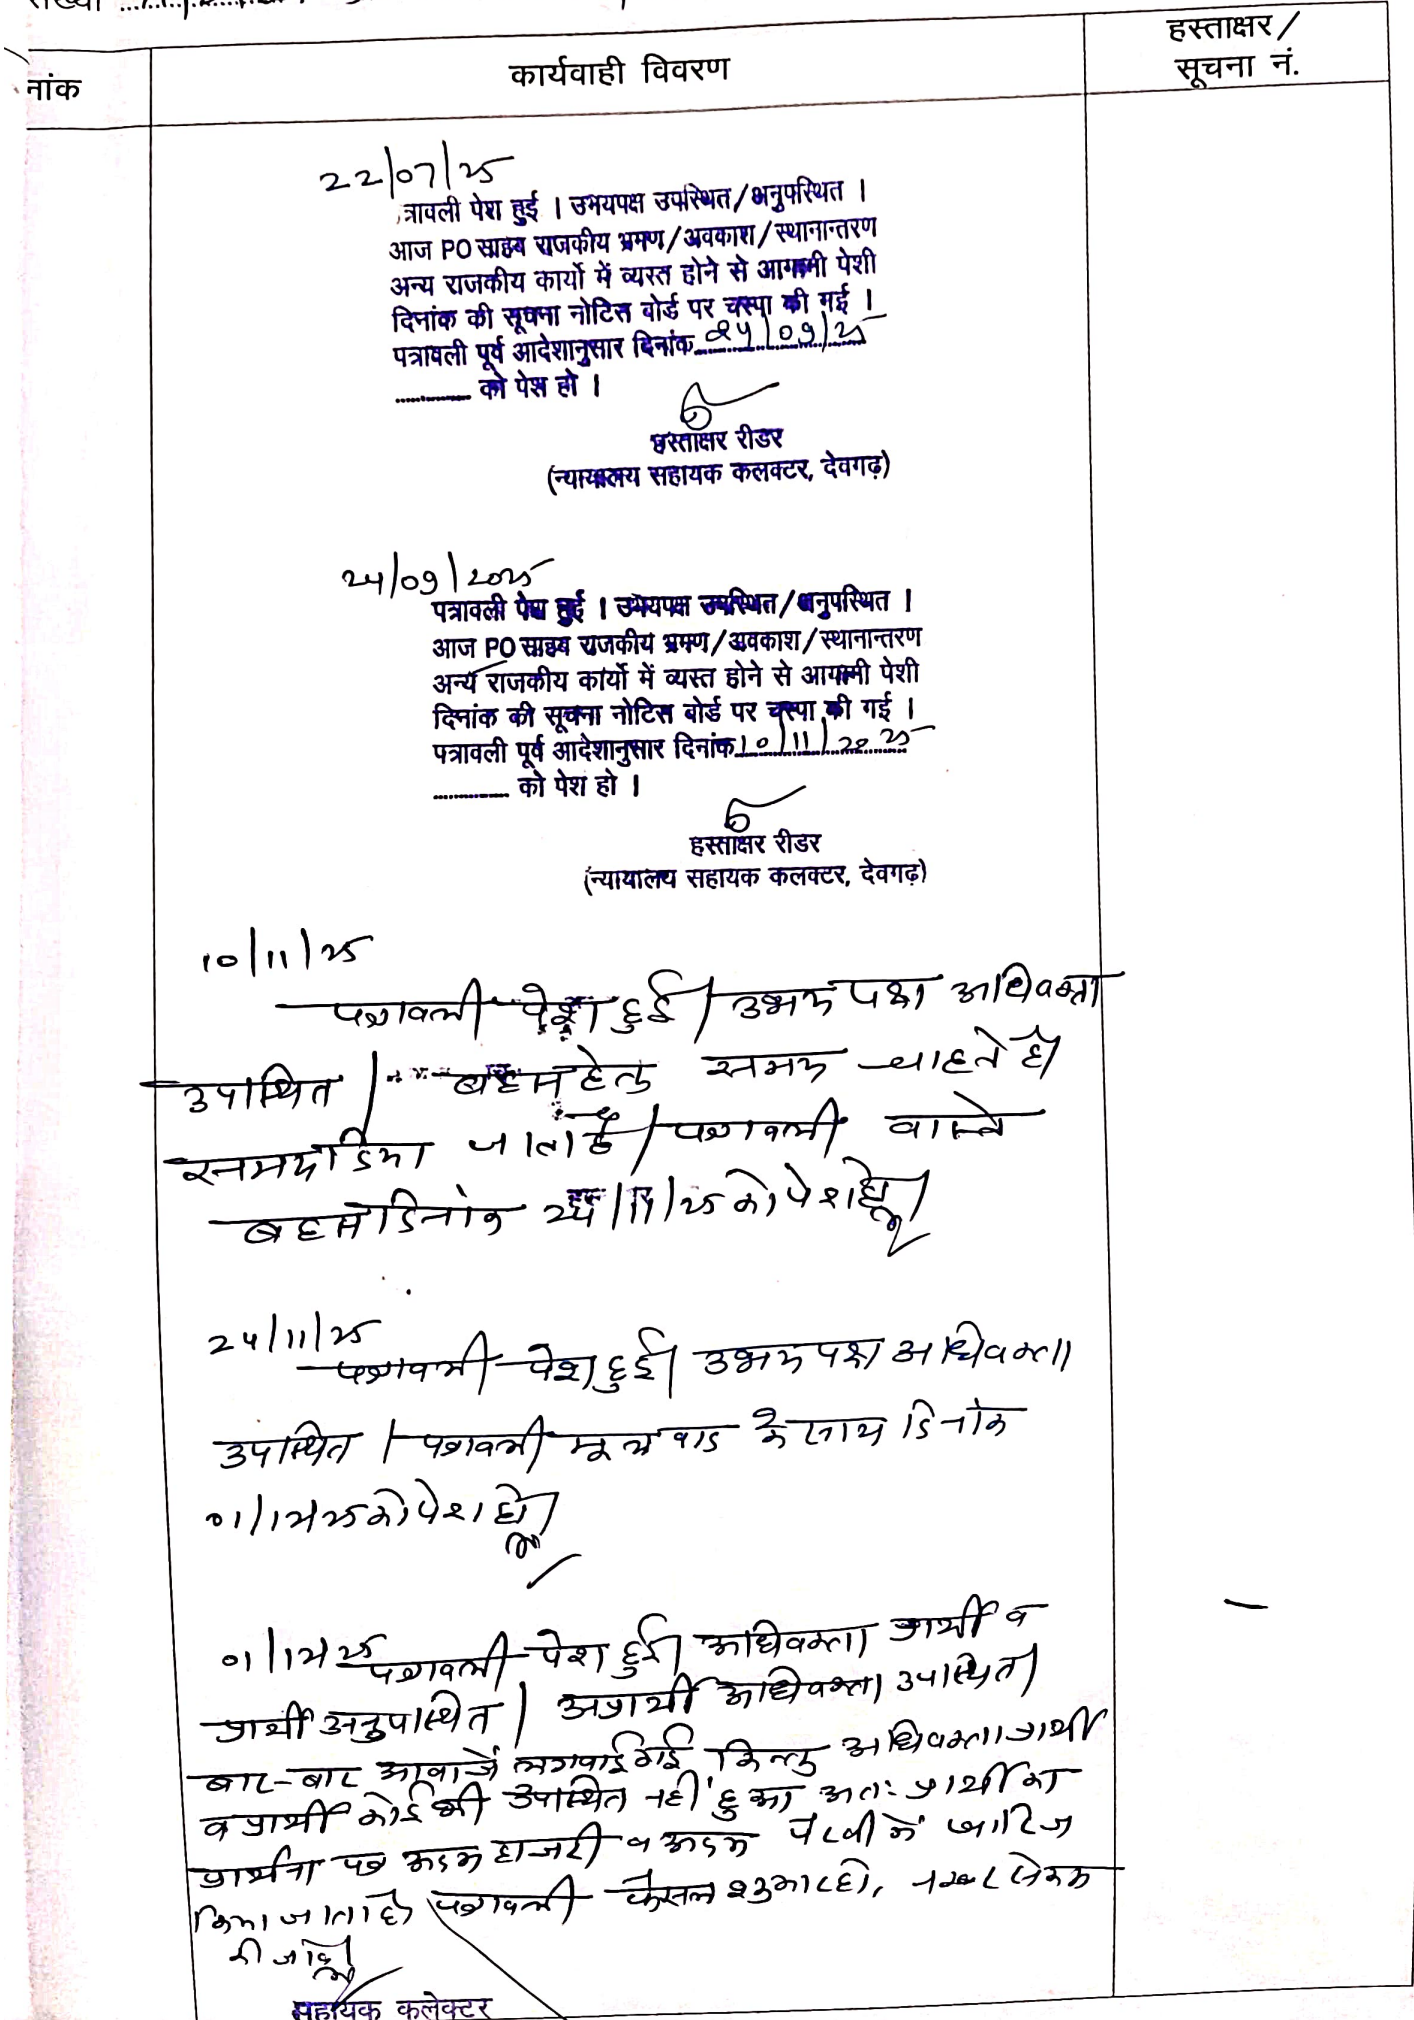 संख्या
नांक
कार्यवाही विवरण
हस्ताक्षर/
सूचना नं.
22/07/25
त्रावली पेश हुई । उभयपक्ष उपस्थित/अनुपस्थित ।
आज PO साहब राजकीय भ्रमण/अवकाश/स्थानान्तरण
अन्य राजकीय कार्यो में व्यस्त होने से आगामी पेशी
दिनांक की सूचना नोटिस बोर्ड पर चस्पा की गई ।
पत्रावली पूर्व आदेशानुसार दिनांक 24/09/25
............ को पेश हो ।
हस्ताक्षर रीडर
(न्यायालय सहायक कलक्टर, देवगढ़)
24/09/2025
पत्रावली पेश हुई । उभयपक्ष उपस्थित/अनुपस्थित ।
आज PO साहब राजकीय भ्रमण/अवकाश/स्थानान्तरण
अन्य राजकीय कार्यो में व्यस्त होने से आगामी पेशी
दिनांक की सूचना नोटिस बोर्ड पर चस्पा की गई ।
पत्रावली पूर्व आदेशानुसार दिनांक 10/11/2025
............ को पेश हो ।
हस्ताक्षर रीडर
(न्यायालय सहायक कलक्टर, देवगढ़)
10/11/25
पत्रावली पेश हुई। उभय पक्ष अधिवक्ता
उपस्थित। बहस हेतु समय चाहते है।
समय दिया जाता है। पत्रावली वास्ते
बहस दिनांक 24/11/25 को पेश हो।
24/11/25
पत्रावली पेश हुई। उभय पक्ष अधिवक्ता
उपस्थित। पत्रावली मूल वाद के साथ दिनांक
01/12/25 को पेश हो।
01/12/25 पत्रावली पेश हुई। अधिवक्ता प्रार्थी व
प्रार्थी अनुपस्थित। अप्रार्थी अधिवक्ता उपस्थित।
बार-बार आवाजें लगवाई गई किन्तु अधिवक्ता प्रार्थी
व प्रार्थी कोई भी उपस्थित नहीं हुआ अतः प्रार्थी का
प्रार्थना पत्र अदम हाजरी व अदम पैरवी में खारिज
किया जाता है। पत्रावली फैसल शुमार हो, नम्बर से कम
की जावे।
सहायक कलेक्टर